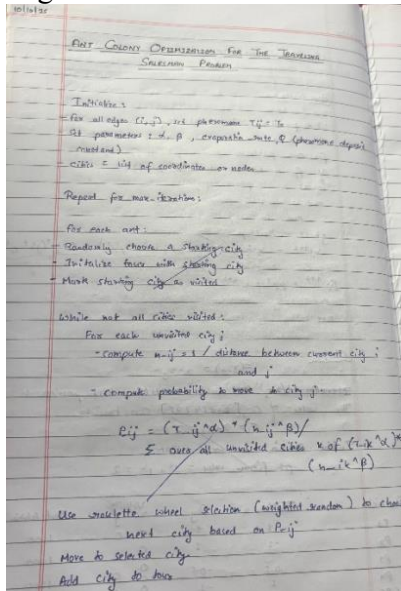 10/10/25
ANT COLONY OPTIMIZATION FOR THE TRAVELING
SALESMAN PROBLEM
Initialize :
- For all edges (i,j), set pheromone τij = τ0
Set parameters : α, β, evaporation rate, Q (pheromone deposit
constant)
- cities = list of coordinates or nodes
Repeat for max-iterations:
for each ant:
- Randomly choose a starting city
- Initialize tour with starting city
- Mark starting city as visited
while not all cities visited :
For each unvisited city j
- compute n-ij = 1 / distance between current city i
and j
- compute probability to move to city j
Pij = (τ_ij^α) * (n_ij^β)/
Σ over all unvisited cities k of (τ_ik^α)*
(n_ik^β)
Use roulette wheel selection (weighted random) to
next city based on P_ij
Move to selected city
Add city to tour